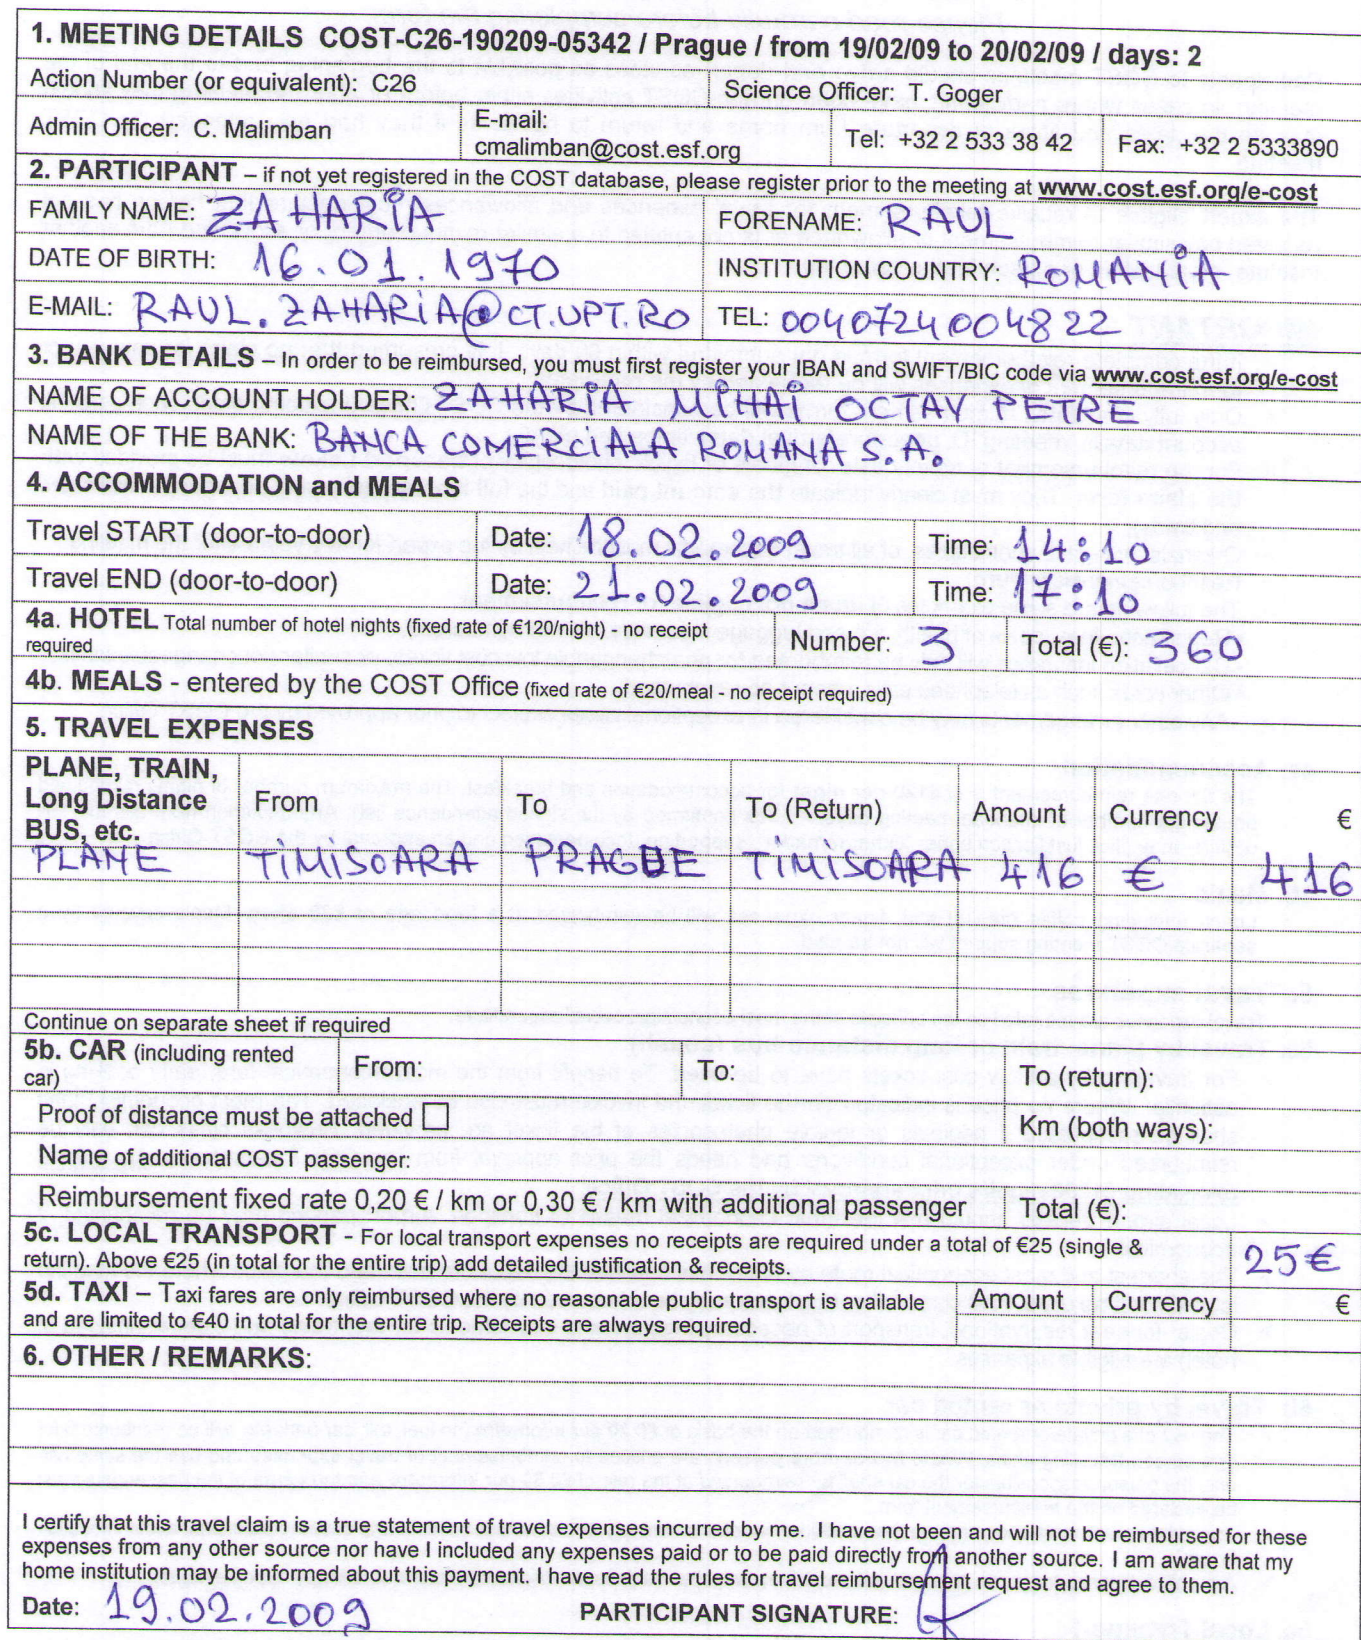 1. MEETING DETAILS COST-C26-190209-05342 / Prague / from 19/02/09 to 20/02/09 / days: 2
Action Number (or equivalent): C26 Science Officer: T. Goger
Admin Officer: C. Malimban E-mail: cmalimban@cost.esf.org Tel: +32 2 533 38 42 Fax: +32 2 5333890
2. PARTICIPANT – if not yet registered in the COST database, please register prior to the meeting at www.cost.esf.org/e-cost
FAMILY NAME: ZAHARIA FORENAME: RAUL
DATE OF BIRTH: 16.01.1970 INSTITUTION COUNTRY: ROMANIA
E-MAIL: RAUL.ZAHARIA@CT.UPT.RO TEL: 0040724004822
3. BANK DETAILS - In order to be reimbursed, you must first register your IBAN and SWIFT/BIC code via www.cost.esf.org/e-cost
NAME OF ACCOUNT HOLDER: ZAHARIA MIHAI OCTAV PETRE
NAME OF THE BANK: BANCA COMERCIALA ROMANA S.A.
4. ACCOMMODATION and MEALS
Travel START (door-to-door) Date: 18.02.2009 Time: 14:10
Travel END (door-to-door) Date: 21.02.2009 Time: 17:10
4a. HOTEL Total number of hotel nights (fixed rate of €120/night) - no receipt required Number: 3 Total (€): 360
4b. MEALS - entered by the COST Office (fixed rate of €20/meal - no receipt required)
5. TRAVEL EXPENSES
PLANE, TRAIN, Long Distance BUS, etc. From To To (Return) Amount Currency €
PLANE TIMISOARA PRAGUE TIMISOARA 416 € 416
Continue on separate sheet if required
5b. CAR (including rented car) From: To: To (return):
Proof of distance must be attached Km (both ways):
Name of additional COST passenger:
Reimbursement fixed rate 0,20 € / km or 0,30 € / km with additional passenger Total (€):
5c. LOCAL TRANSPORT - For local transport expenses no receipts are required under a total of €25 (single &
return). Above €25 (in total for the entire trip) add detailed justification & receipts. 25€
5d. TAXI – Taxi fares are only reimbursed where no reasonable public transport is available Amount Currency €
and are limited to €40 in total for the entire trip. Receipts are always required.
6. OTHER / REMARKS:
I certify that this travel claim is a true statement of travel expenses incurred by me. I have not been and will not be reimbursed for these
expenses from any other source nor have I included any expenses paid or to be paid directly from another source. I am aware that my
home institution may be informed about this payment. I have read the rules for travel reimbursement request and agree to them.
Date: 19.02.2009 PARTICIPANT SIGNATURE: